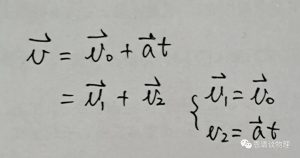 v⃗ = v⃗₀ + a⃗t
= v⃗₁ + v⃗₂
{ v⃗₁ = v⃗₀
v₂ = a⃗t